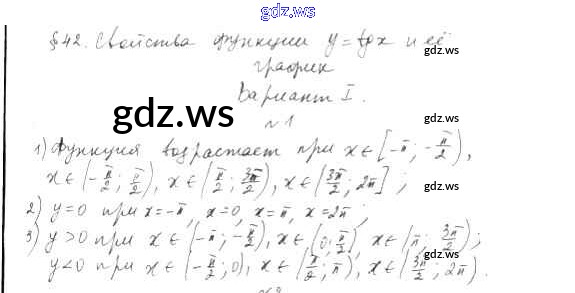 gdz.ws
§42. Свойства функции y = tgx и её
gdz.ws
график
Вариант I.
gdz.ws
№1
1) Функция возрастает при x∈[-π; -π/2),
x∈(-π/2; π/2), x∈(π/2; 3π/2), x∈(3π/2; 2π];
gdz.ws
2) y=0 при x=-π, x=0, x=π, x=2π;
3) y>0 при x∈(-π; -π/2), x∈(0; π/2), x∈(π; 3π/2);
y<0 при x∈(-π/2; 0), x∈(π/2; π), x∈(3π/2; 2π).
gdz.ws
gdz.ws